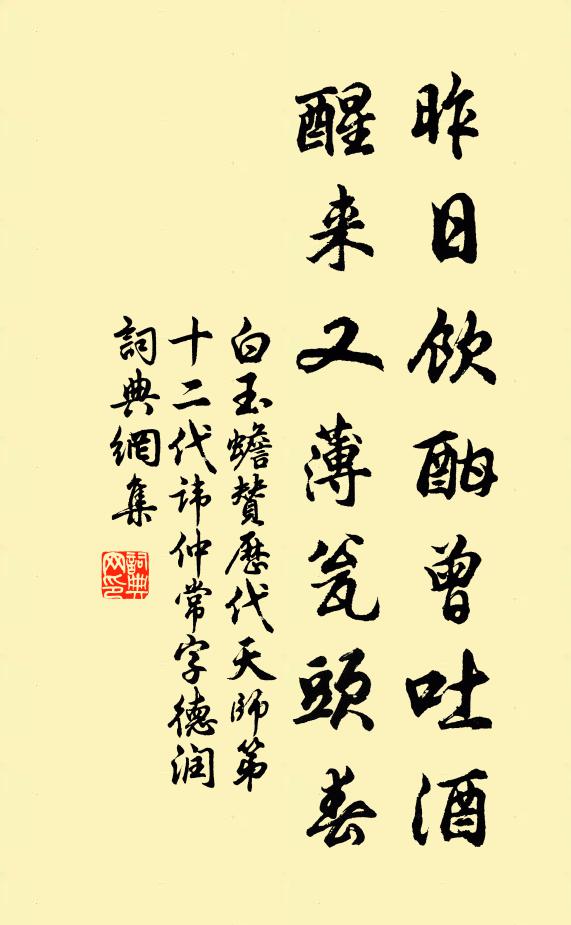 昨日飲酣曾吐酒
醒来又薄瓮頭春
白玉蟾贊歷代天師第
十二代諱仲常字德润
詞典網集
詞典
网印